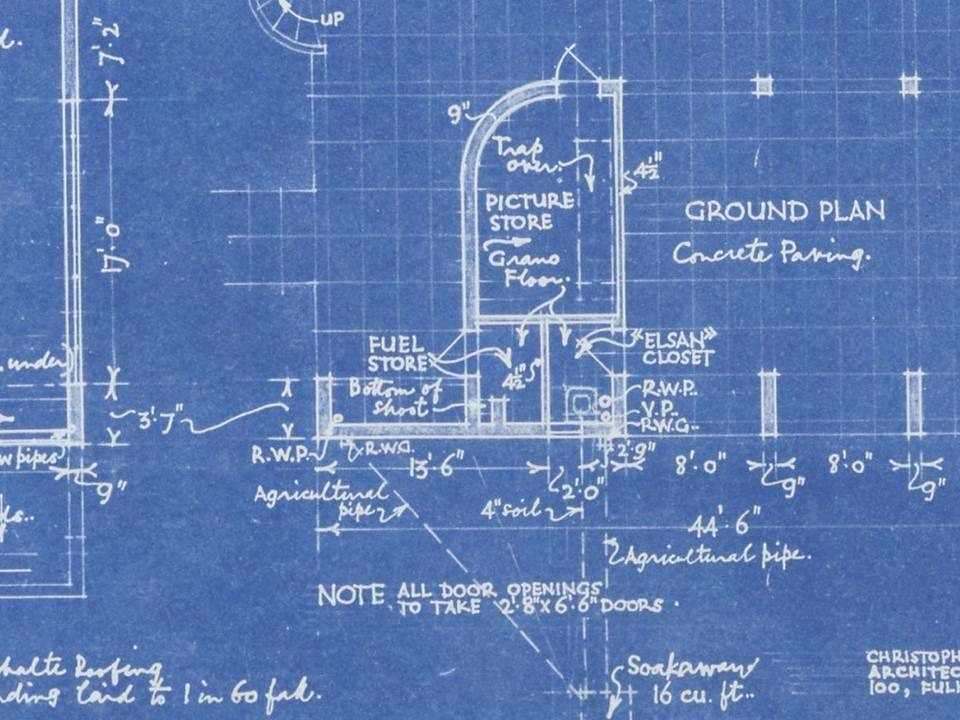 UP
7'·2"
9"
Trap
over.
4½"
PICTURE
STORE
GROUND PLAN
Concrete Paving.
Grano
Floor.
7'·0"
under
FUEL
STORE
4½"
"ELSAN"
CLOSET
Bottom of
shoot
R.W.P.
V.P.
R.W.G.
3'·7"
R.W.P.
R.W.G.
13'·6"
2'·9"
8'·0"
8'·0"
w pipes
9"
2'·0"
9"
9"
Agricultural
pipe
4" soil
44'·6"
Agricultural pipe.
NOTE ALL DOOR OPENINGS
TO TAKE 2'·8" X 6'·6" DOORS.
halte Roofing
nding laid to 1 in 60 fall.
Soakaway
16 cu. ft..
CHRISTOPH
ARCHITEC
100, FUL